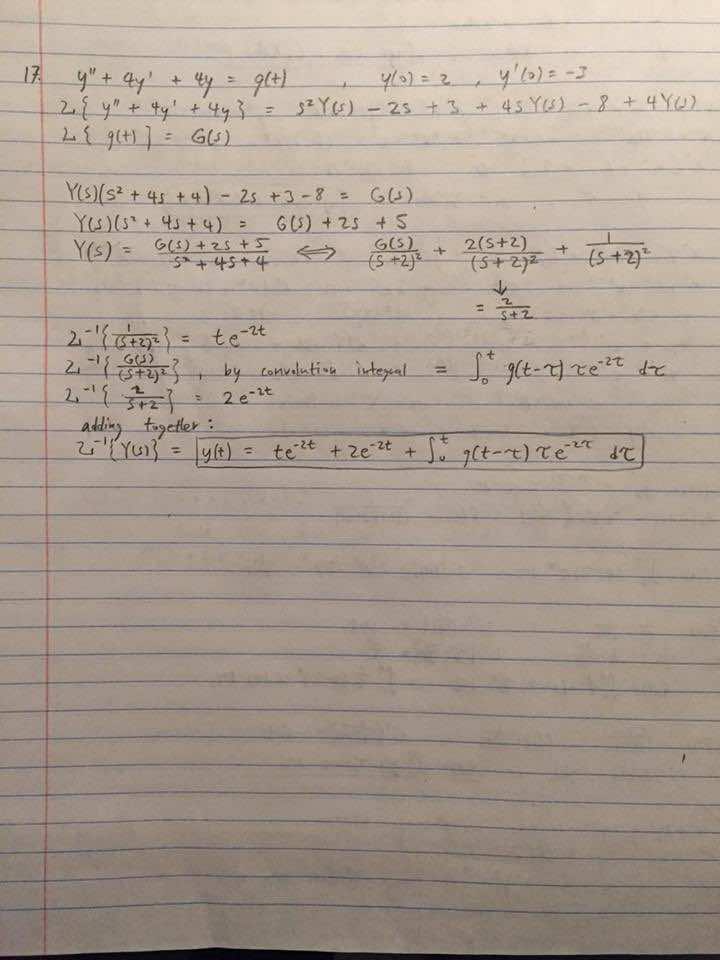 17. y" + 4y' + 4y = g(t) , y(0) = 2 , y'(0) = -3
L{ y" + 4y' + 4y } = s²Y(s) - 2s + 3 + 4sY(s) - 8 + 4Y(s)
L{ g(t) } = G(s)
Y(s)(s² + 4s + 4) - 2s + 3 - 8 = G(s)
Y(s)(s² + 4s + 4) = G(s) + 2s + 5
Y(s) = (G(s) + 2s + 5)/(s² + 4s + 4) ⟺ G(s)/(s+2)² + 2(s+2)/(s+2)² + 1/(s+2)²
↓
= 2/(s+2)
L⁻¹{ 1/(s+2)² } = te^(-2t)
L⁻¹{ G(s)/(s+2)² }, by convolution integral = ∫₀ᵗ g(t-τ) τe^(-2τ) dτ
L⁻¹{ 2/(s+2) } = 2e^(-2t)
adding together:
L⁻¹{ Y(s) } = y(t) = te^(-2t) + 2e^(-2t) + ∫₀ᵗ g(t-τ) τe^(-2τ) dτ